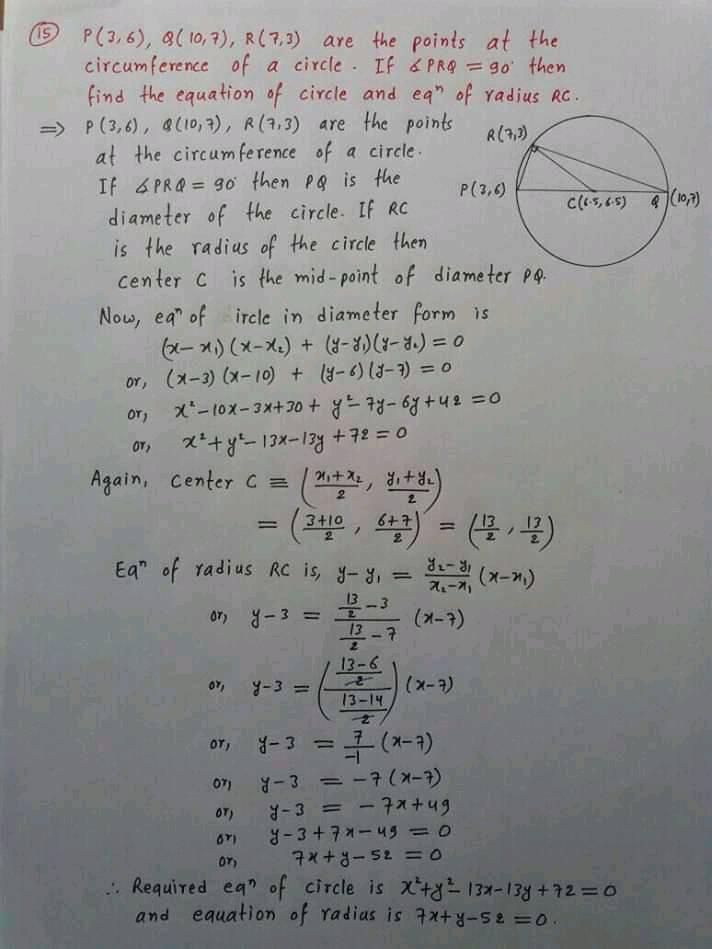 (15) P(3,6), Q(10,7), R(7,3) are the points at the
circumference of a circle. If ∡PRQ = 90° then
find the equation of circle and eqⁿ of radius RC.
⇒ P(3,6), Q(10,7), R(7,3) are the points
at the circumference of a circle.
If ∡PRQ = 90° then PQ is the
diameter of the circle. If RC
is the radius of the circle then
center C is the mid-point of diameter PQ.
R(7,3)
P(3,6)
C(6.5,6.5) Q (10,7)
Now, eqⁿ of ircle in diameter form is
(x-x₁)(x-x₂) + (y-y₁)(y-y₂) = 0
or, (x-3)(x-10) + (y-6)(y-7) = 0
or, x²-10x-3x+30+y²-7y-6y+42 = 0
or, x²+y²-13x-13y+72 = 0
Again, Center C ≡ ((x₁+x₂)/2, (y₁+y₂)/2)
= ((3+10)/2, (6+7)/2) = (13/2, 13/2)
Eqⁿ of radius RC is, y-y₁ = (y₂-y₁)/(x₂-x₁) (x-x₁)
or, y-3 = (13/2-3)/(13/2-7) (x-7)
or, y-3 = (((13-6)/2)/((13-14)/2)) (x-7)
or, y-3 = 7/-1 (x-7)
or, y-3 = -7(x-7)
or, y-3 = -7x+49
or, y-3+7x-49 = 0
or, 7x+y-52 = 0
∴ Required eqⁿ of circle is x²+y²-13x-13y+72=0
and equation of radius is 7x+y-52=0.